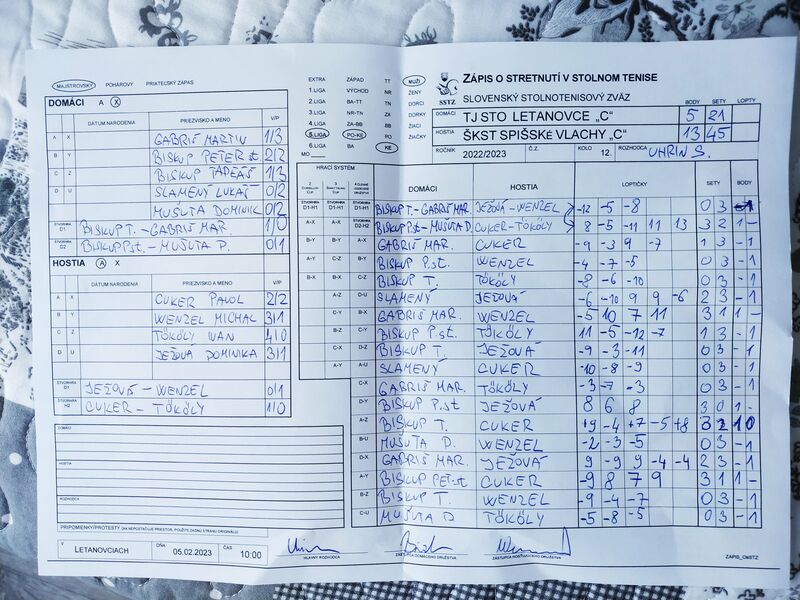 MAJSTROVSKÝ POHÁROVÝ PRIATEĽSKÝ ZÁPAS
DOMÁCI A X
DÁTUM NARODENIA PRIEZVISKO A MENO V/P
A X GABRIŠ MARTIN 1/3
B Y BISKUP PETER st 2/2
C Z BISKUP TADEÁŠ 1/3
D U SLAMENÝ LUKÁŠ 0/2
MUŠUTA DOMINIK 0/2
ŠTVORHRA D1 BISKUP T. - GABRIŠ MAR. 1/0
ŠTVORHRA D2 BISKUP P.st - MUŠUTA D. 0/1
HOSTIA A X
DÁTUM NARODENIA PRIEZVISKO A MENO V/P
A X CUKER PAVOL 2/2
B Y WENZEL MICHAL 3/1
C Z TÖKÖLY IVAN 4/0
D U JEŽOVÁ DOMINIKA 3/1
ŠTVORHRA JEŽOVÁ - WENZEL 0/1
ŠTVORHRA H2 CUKER - TÖKÖLY 1/0
DOMÁCI
HOSTIA
ROZHODCA
PRIPOMIENKY/PROTESTY (AK NEPOSTAČUJE PRIESTOR, POUŽITE ZADNÚ STRANU ORIGINÁLU)
V LETANOVCIACH DŇA 05.02.2023 ČAS 10:00
HLAVNÝ ROZHODCA
ZÁSTUPCA DOMÁCEHO DRUŽSTVA
ZÁSTUPCA HOSŤUJÚCEHO DRUŽSTVA
ZÁPIS_OsSTZ
EXTRA ZÁPAD TT
1.LIGA VÝCHOD NR
2.LIGA BA-TT TN
3.LIGA NR-TN ZA
4.LIGA ZA-BB BB
5.LIGA PO-KE PO
6.LIGA BA KE
MO
MUŽI
ŽENY
DORCI
DORKY
ŽIACI
ŽIAČKY
SSTZ
ZÁPIS O STRETNUTÍ V STOLNOM TENISE
SLOVENSKÝ STOLNOTENISOVÝ ZVÄZ BODY SETY LOPTY
DOMÁCI TJ STO LETANOVCE „C" 5 21
HOSTIA ŠKST SPIŠSKÉ VLACHY „C" 13 45
ROČNÍK 2022/2023 Č.Z. KOLO 12. ROZHODCA UHRIN S.
HRACÍ SYSTÉM DOMÁCI HOSTIA LOPTIČKY SETY BODY
D1-H1 D1-H1 D1-H1 BISKUP T. - GABRIŠ MAR. JEŽOVÁ - WENZEL -12 -5 -8 0 3 -1
A-X A-X D2-H2 BISKUP P.st - MUŠUTA D. CUKER - TÖKÖLY 8 -5 -11 11 13 3 2 1 -
B-Y B-Y A-X GABRIŠ MAR. CUKER -9 -3 9 -7 1 3 - 1
C-Z B-Y BISKUP P.st. WENZEL -4 -7 -5 0 3 - 1
B-X C-Z BISKUP T. TÖKÖLY -8 -6 -10 0 3 - 1
A-Z D-U SLAMENÝ JEŽOVÁ -6 -10 9 9 -6 2 3 - 1
C-Y B-X GABRIŠ MAR. WENZEL -5 10 7 11 3 1 1 -
B-Z C-Y BISKUP P.st. TÖKÖLY 11 -5 -12 -7 1 3 - 1
BISKUP T. JEŽOVÁ -9 -3 -11 0 3 - 1
A-U SLAMENÝ CUKER -10 -8 -9 0 3 - 1
C-X GABRIŠ MAR. TÖKÖLY -3 -7 -3 0 3 - 1
D-Y BISKUP P.st JEŽOVÁ 8 6 8 3 0 1 -
A-Z BISKUP T. CUKER +9 -4 +7 -5 +8 3 2 1 0
B-U MUŠUTA D. WENZEL -2 -3 -5 0 3 - 1
D-X GABRIŠ MAR. JEŽOVÁ -9 9 9 -4 -4 2 3 - 1
A-Y BISKUP PET.st CUKER -9 8 7 9 3 1 1 -
B-Z BISKUP T. WENZEL -9 -4 -7 0 3 - 1
C-U MUŠUTA D TÖKÖLY -5 -8 -5 0 3 - 1